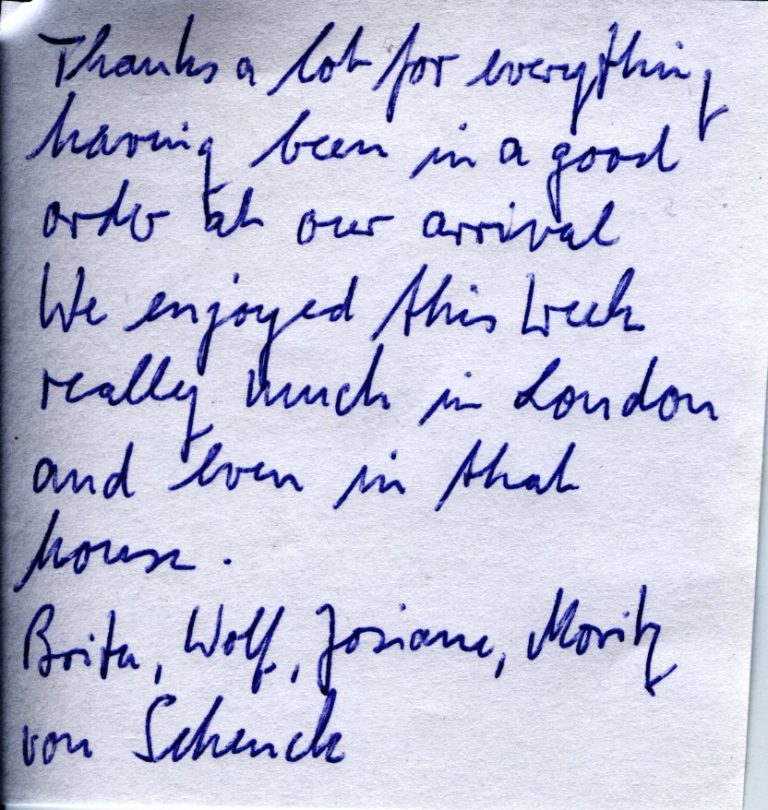 Thanks a lot for everything
having been in a good
order at our arrival
We enjoyed this week
really much in London
and even in that
house.
Brita, Wolf, Josiane, Moritz
von Schenck